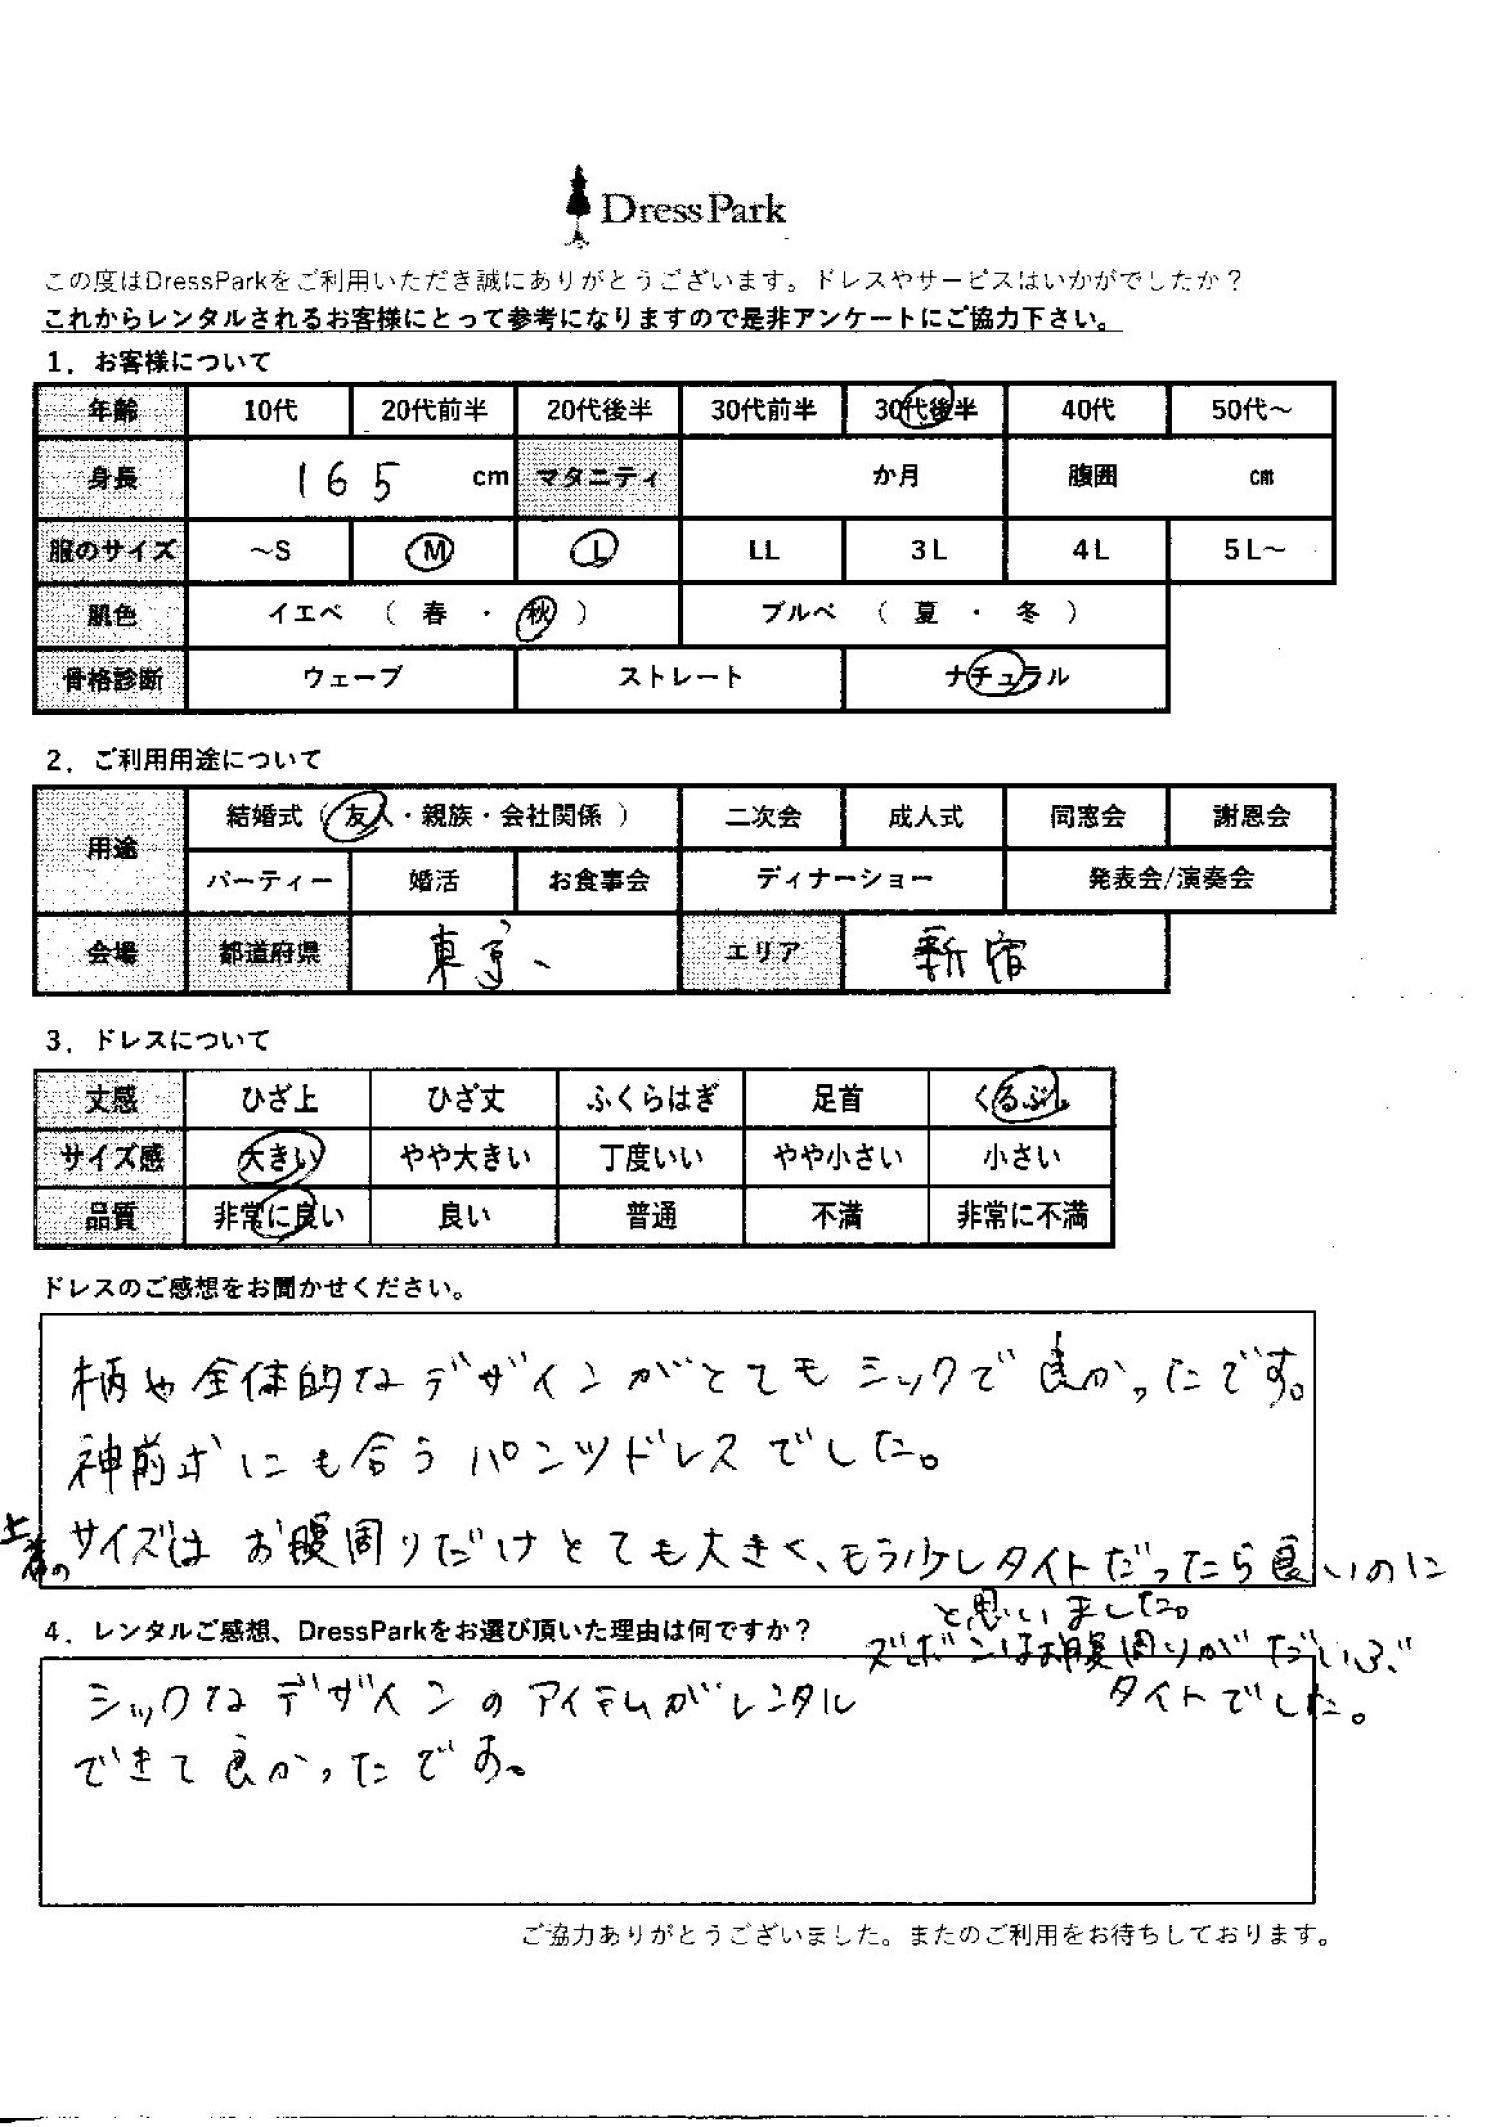 DressPark
この度はDressParkをご利用いただき誠にありがとうございます。ドレスやサービスはいかがでしたか？
これからレンタルされるお客様にとって参考になりますので是非アンケートにご協力下さい。
1．お客様について
年齢 10代 20代前半 20代後半 30代前半 30代後半 40代 50代～
身長 165 cm マタニティ か月 腹囲 cm
服のサイズ ～S M L LL 3L 4L 5L～
肌色 イエベ （ 春 ・ 秋 ） ブルベ （ 夏 ・ 冬 ）
骨格診断 ウェーブ ストレート ナチュラル
2．ご利用用途について
用途 結婚式（ 友人・親族・会社関係 ） 二次会 成人式 同窓会 謝恩会
パーティー 婚活 お食事会 ディナーショー 発表会/演奏会
会場 都道府県 東京 エリア 新宿
3．ドレスについて
丈感 ひざ上 ひざ丈 ふくらはぎ 足首 くるぶし
サイズ感 大きい やや大きい 丁度いい やや小さい 小さい
品質 非常に良い 良い 普通 不満 非常に不満
ドレスのご感想をお聞かせください。
柄や全体的なデザインがとてもシックで良かったです。
神前式にも合うパンツドレスでした。
上着のサイズはお腹周りだけとても大きく、もう少しタイトだったら良いのに
と思いました。
ズボンはお腹周りがだいぶ
タイトでした。
4．レンタルご感想、DressParkをお選び頂いた理由は何ですか？
シックなデザインのアイテムがレンタル
できて良かったです。
ご協力ありがとうございました。またのご利用をお待ちしております。